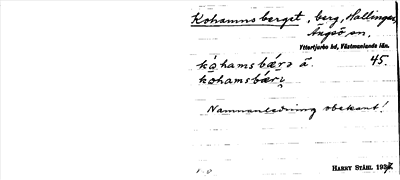 Kohamnsberget, berg, Hallingen,
Ängsö sn.
Yttertjurbo hd, Västmanlands län.
kohamsbærə ä. 45.
kohamsbæri
Namnanledning obekant!
HARRY STÅHL 193